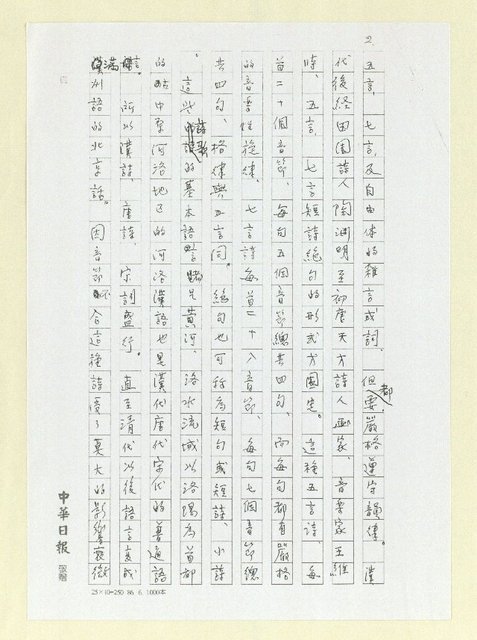 2.
五言、七言及自由体的雜言或詞。但都要嚴格遵守韻律。漢
代後経田園詩人陶渊明至初唐天才詩人画家、音楽家王維
時、五言、七言短詩絕句的形式方固定。這種五言詩、每
首二十個音節、每句五個音節總共四句、而每句都有嚴格
的音香性旋律。七言詩每首二十八音節、每句七個音節總
共四句、格律與五言同。絕句也可称為短句或短詩、小詩
。這些詩歌的基本語言是黄河、洛水流域以洛陽為首都
的中原河洛地区的河洛漢語也是漢代唐代宋代的普通語
言。所以漢詩、唐詩、宋詞盛行。直至清代以後語言変成
滿洲語的北京話。因音節不合這種詩受了莫大的影響衰微
中華日報
25×10=250 86. 6. 1000本